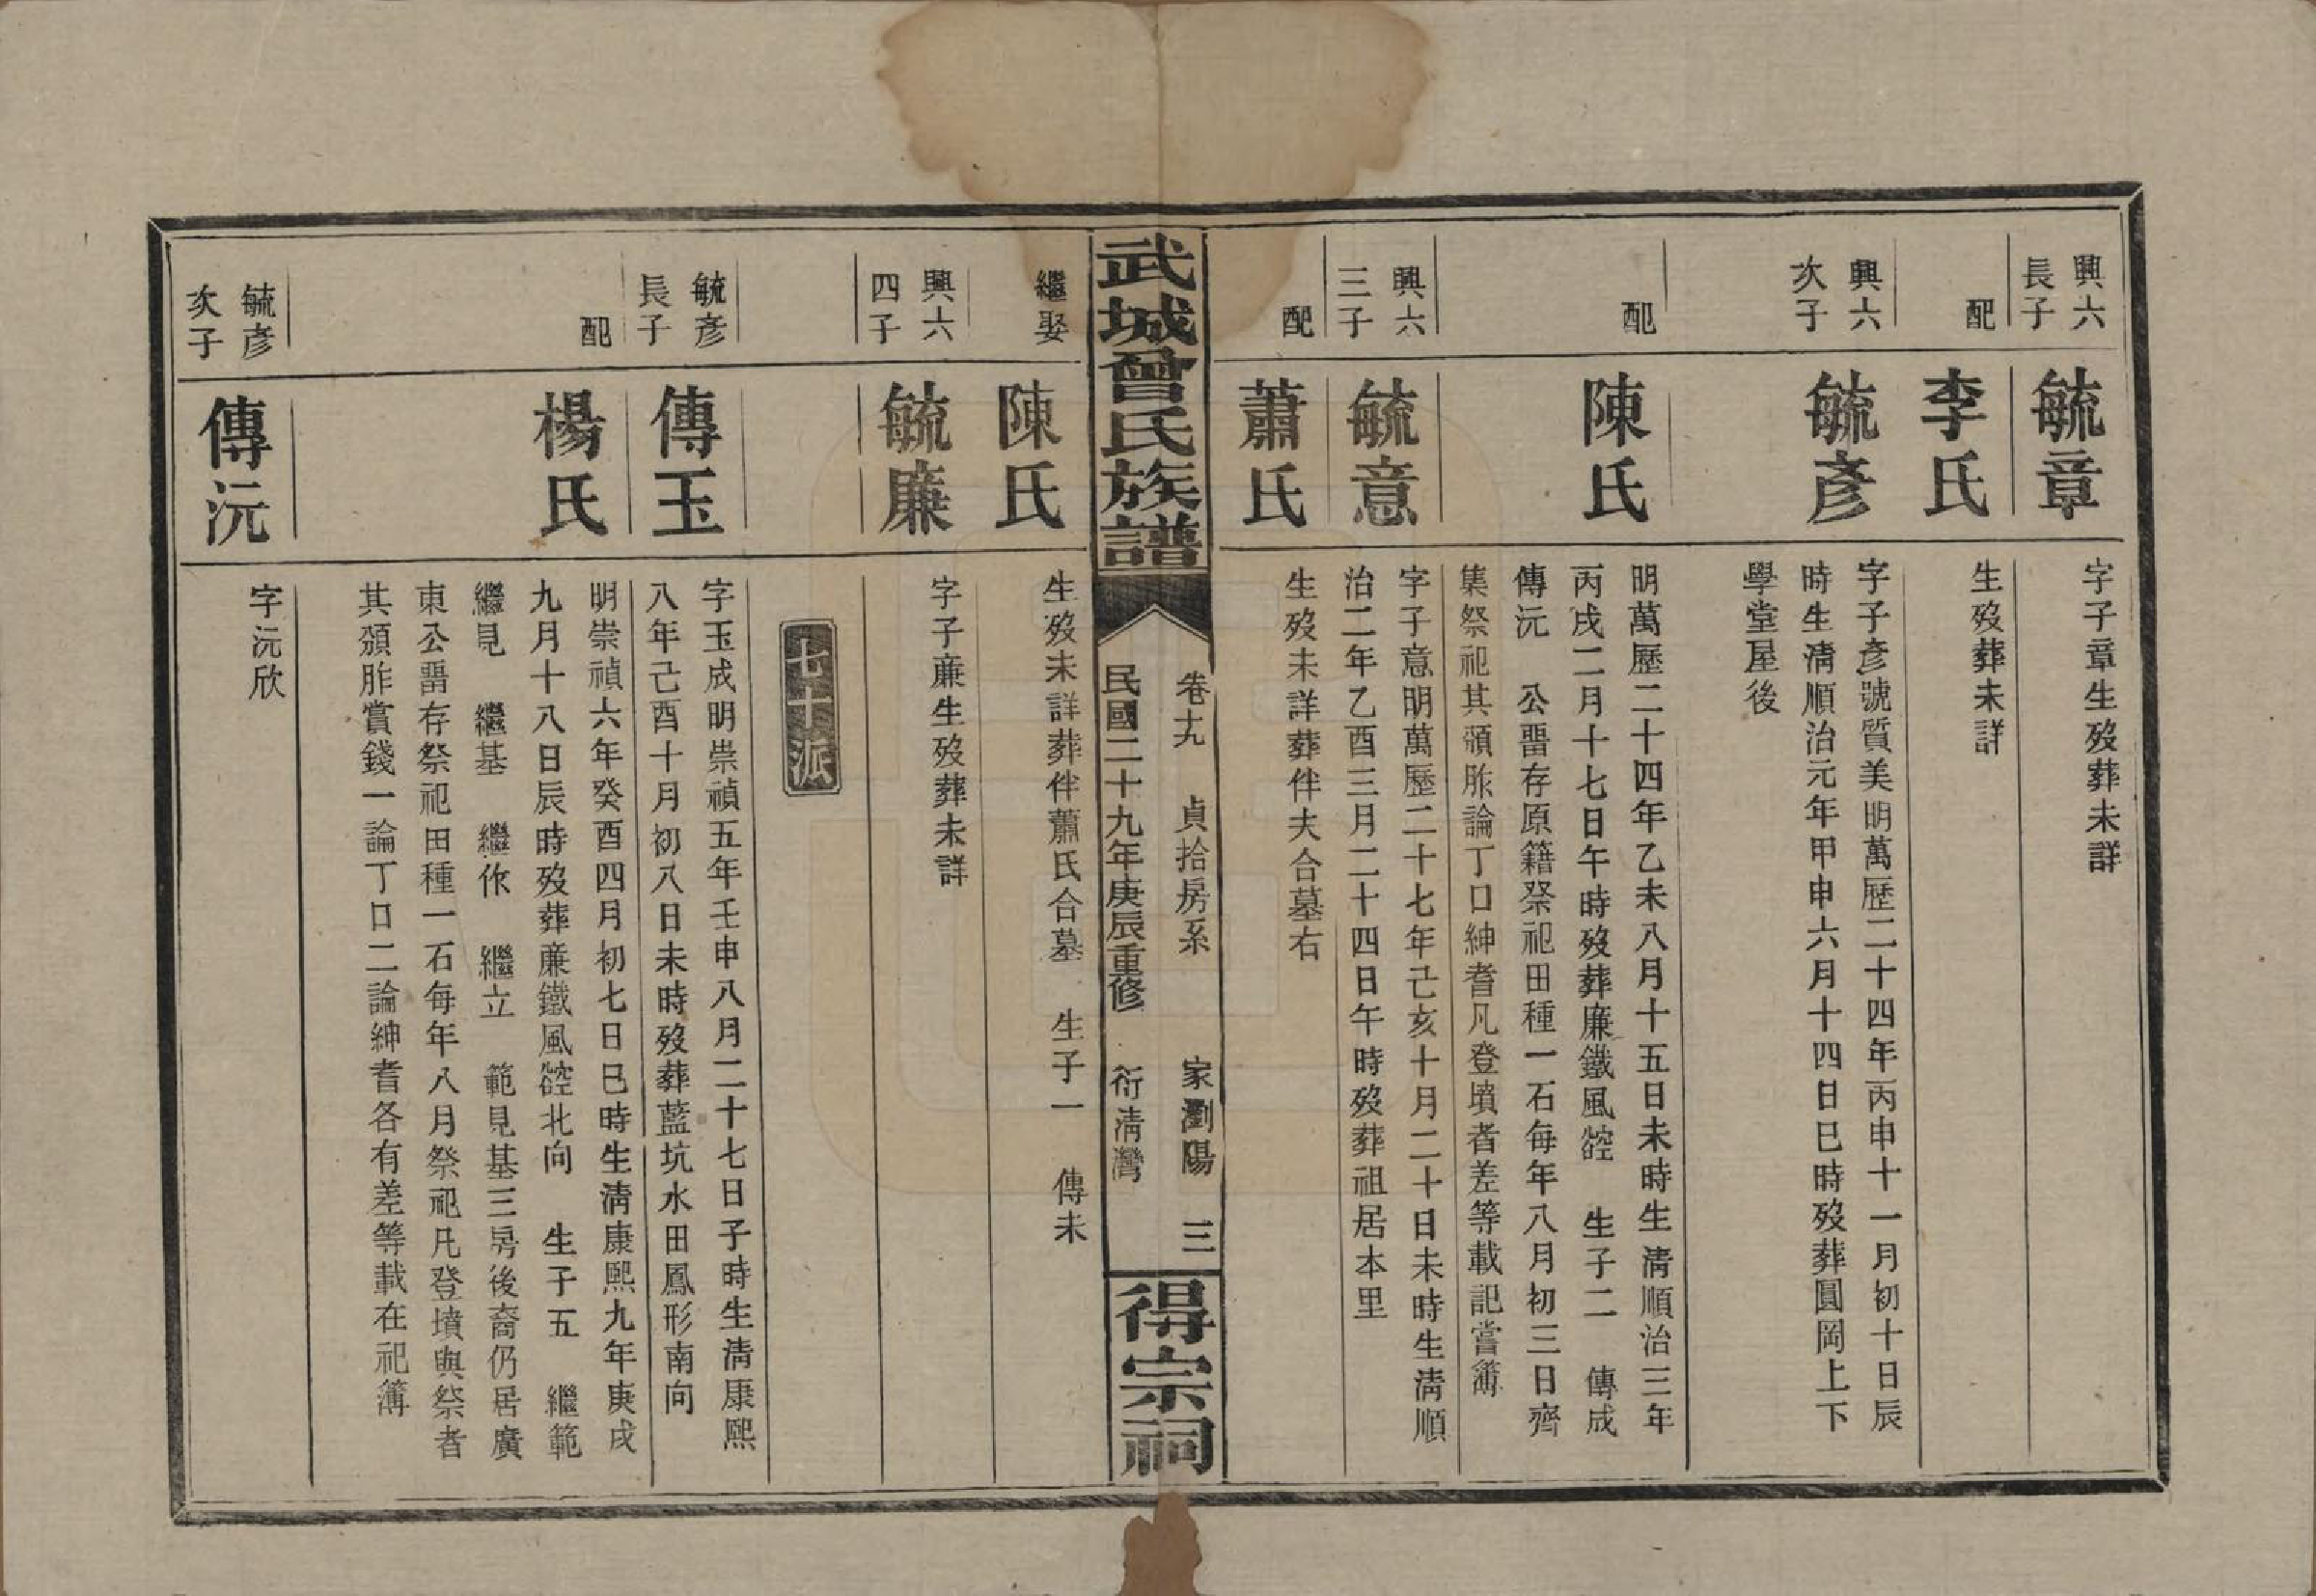 興六
長子
毓章
字子章生歿葬未詳
配
李氏
生歿葬未詳
興六
次子
毓彥
字子彥號質美明萬歷二十四年丙申十一月初十日辰
時生清順治元年甲申六月十四日巳時歿葬圓岡上下
學堂屋後
配
陳氏
明萬歷二十四年乙未八月十五日未時生清順治三年
丙戌二月十七日午時歿葬廉鐵風 生子二 傳成
傳沅 公畱存原籍祭祀田種一石每年八月初三日齊
集祭祀其頒胙論丁口紳耆凡登墳者差等載記嘗簿
興六
三子
毓意
字子意明萬歷二十七年己亥十月二十日未時生清順
治二年乙酉三月二十四日午時歿葬祖居本里
配
蕭氏
生歿未詳葬伴夫合墓右
武城曾氏族譜
卷十九 貞拾房系 家瀏陽 三
民國二十九年庚辰重修 衍清灣
得宗祠
繼娶
陳氏
生歿未詳葬伴蕭氏合墓 生子一 傳未
興六
四子
毓廉
字子廉生歿葬未詳
七十派
毓彥
長子
傳玉
字玉成明崇禎五年壬申八月二十七日子時生清康熙
八年己酉十月初八日未時歿葬藍坑水田鳳形南向
配
楊氏
明崇禎六年癸酉四月初七日巳時生清康熙九年庚戌
九月十八日辰時歿葬廉鐵風北向 生子五 繼範
繼見 繼基 繼作 繼立 範見基三房後裔仍居廣
東公畱存祭祀田種一石每年八月祭祀凡登墳與祭者
其頒胙賞錢一論丁口二論紳耆各有差等載在祀簿
毓彥
次子
傳沅
字沅欣